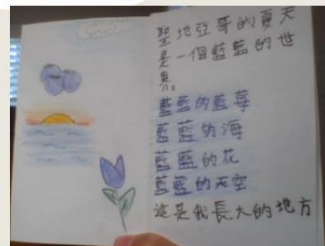 聖地亞哥的夏天
是一個藍藍的世
界。
藍藍的藍莓
藍藍的海
藍藍的花
藍藍的天空
這是我長大的地方